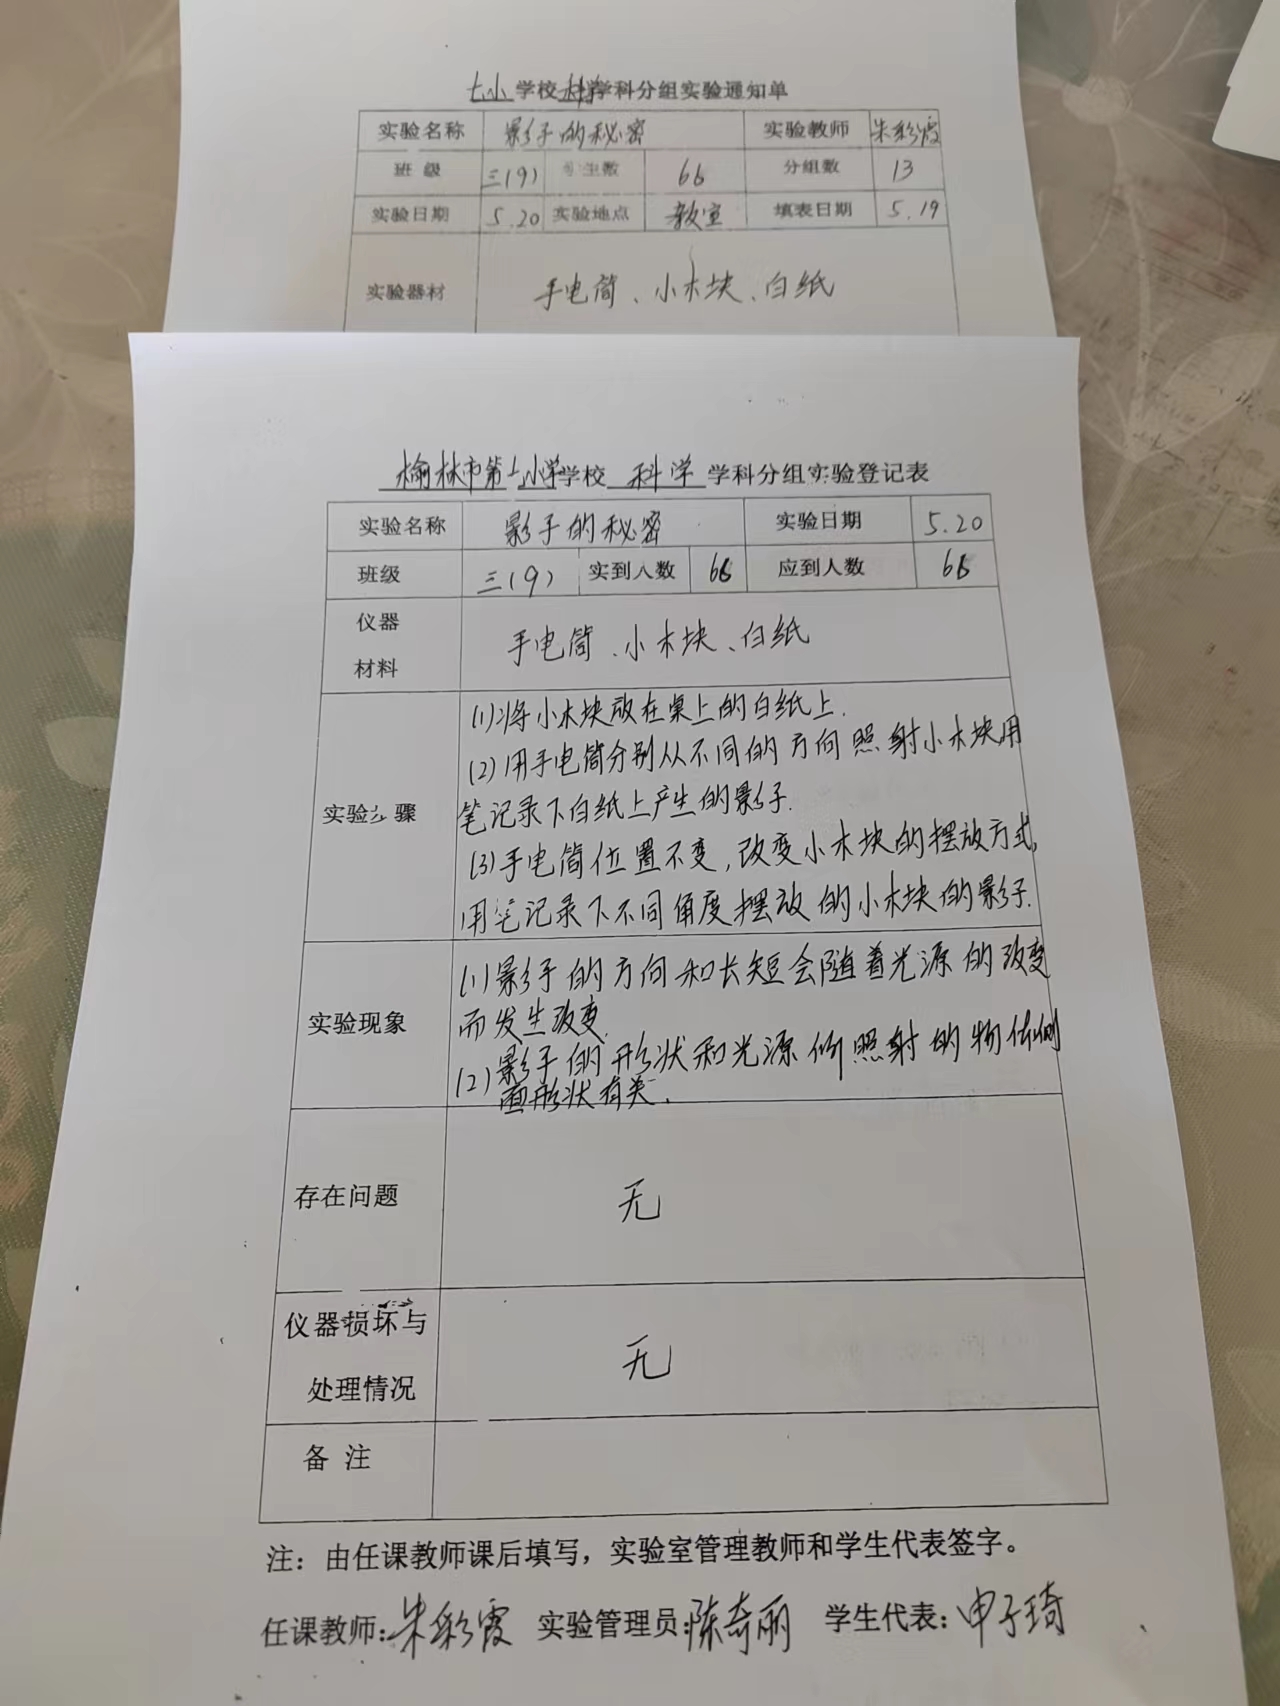 七小学校科学学科分组实验通知单
实验名称 影子的秘密 实验教师 朱彩霞
班 级 三(9) 学生数 66 分组数 13
实验日期 5.20 实验地点 教室 填表日期 5.19
实验器材 手电筒、小木块、白纸
榆林市第七小学学校 科学 学科分组实验登记表
实验名称 影子的秘密 实验日期 5.20
班级 三(9) 实到人数 66 应到人数 66
仪器
材料
手电筒、小木块、白纸
实验步骤
(1)将小木块放在桌上的白纸上.
(2)用手电筒分别从不同的方向照射小木块用
笔记录下白纸上产生的影子.
(3)手电筒位置不变,改变小木块的摆放方式,
用笔记录下不同角度摆放的小木块的影子.
实验现象
(1)影子的方向和长短会随着光源的改变
而发生改变.
(2)影子的形状和光源所照射的物体侧
面形状有关.
存在问题 无
仪器损坏与
处理情况
无
备 注
注：由任课教师课后填写，实验室管理教师和学生代表签字。
任课教师:朱彩霞 实验管理员:陈奇丽 学生代表:申子琦